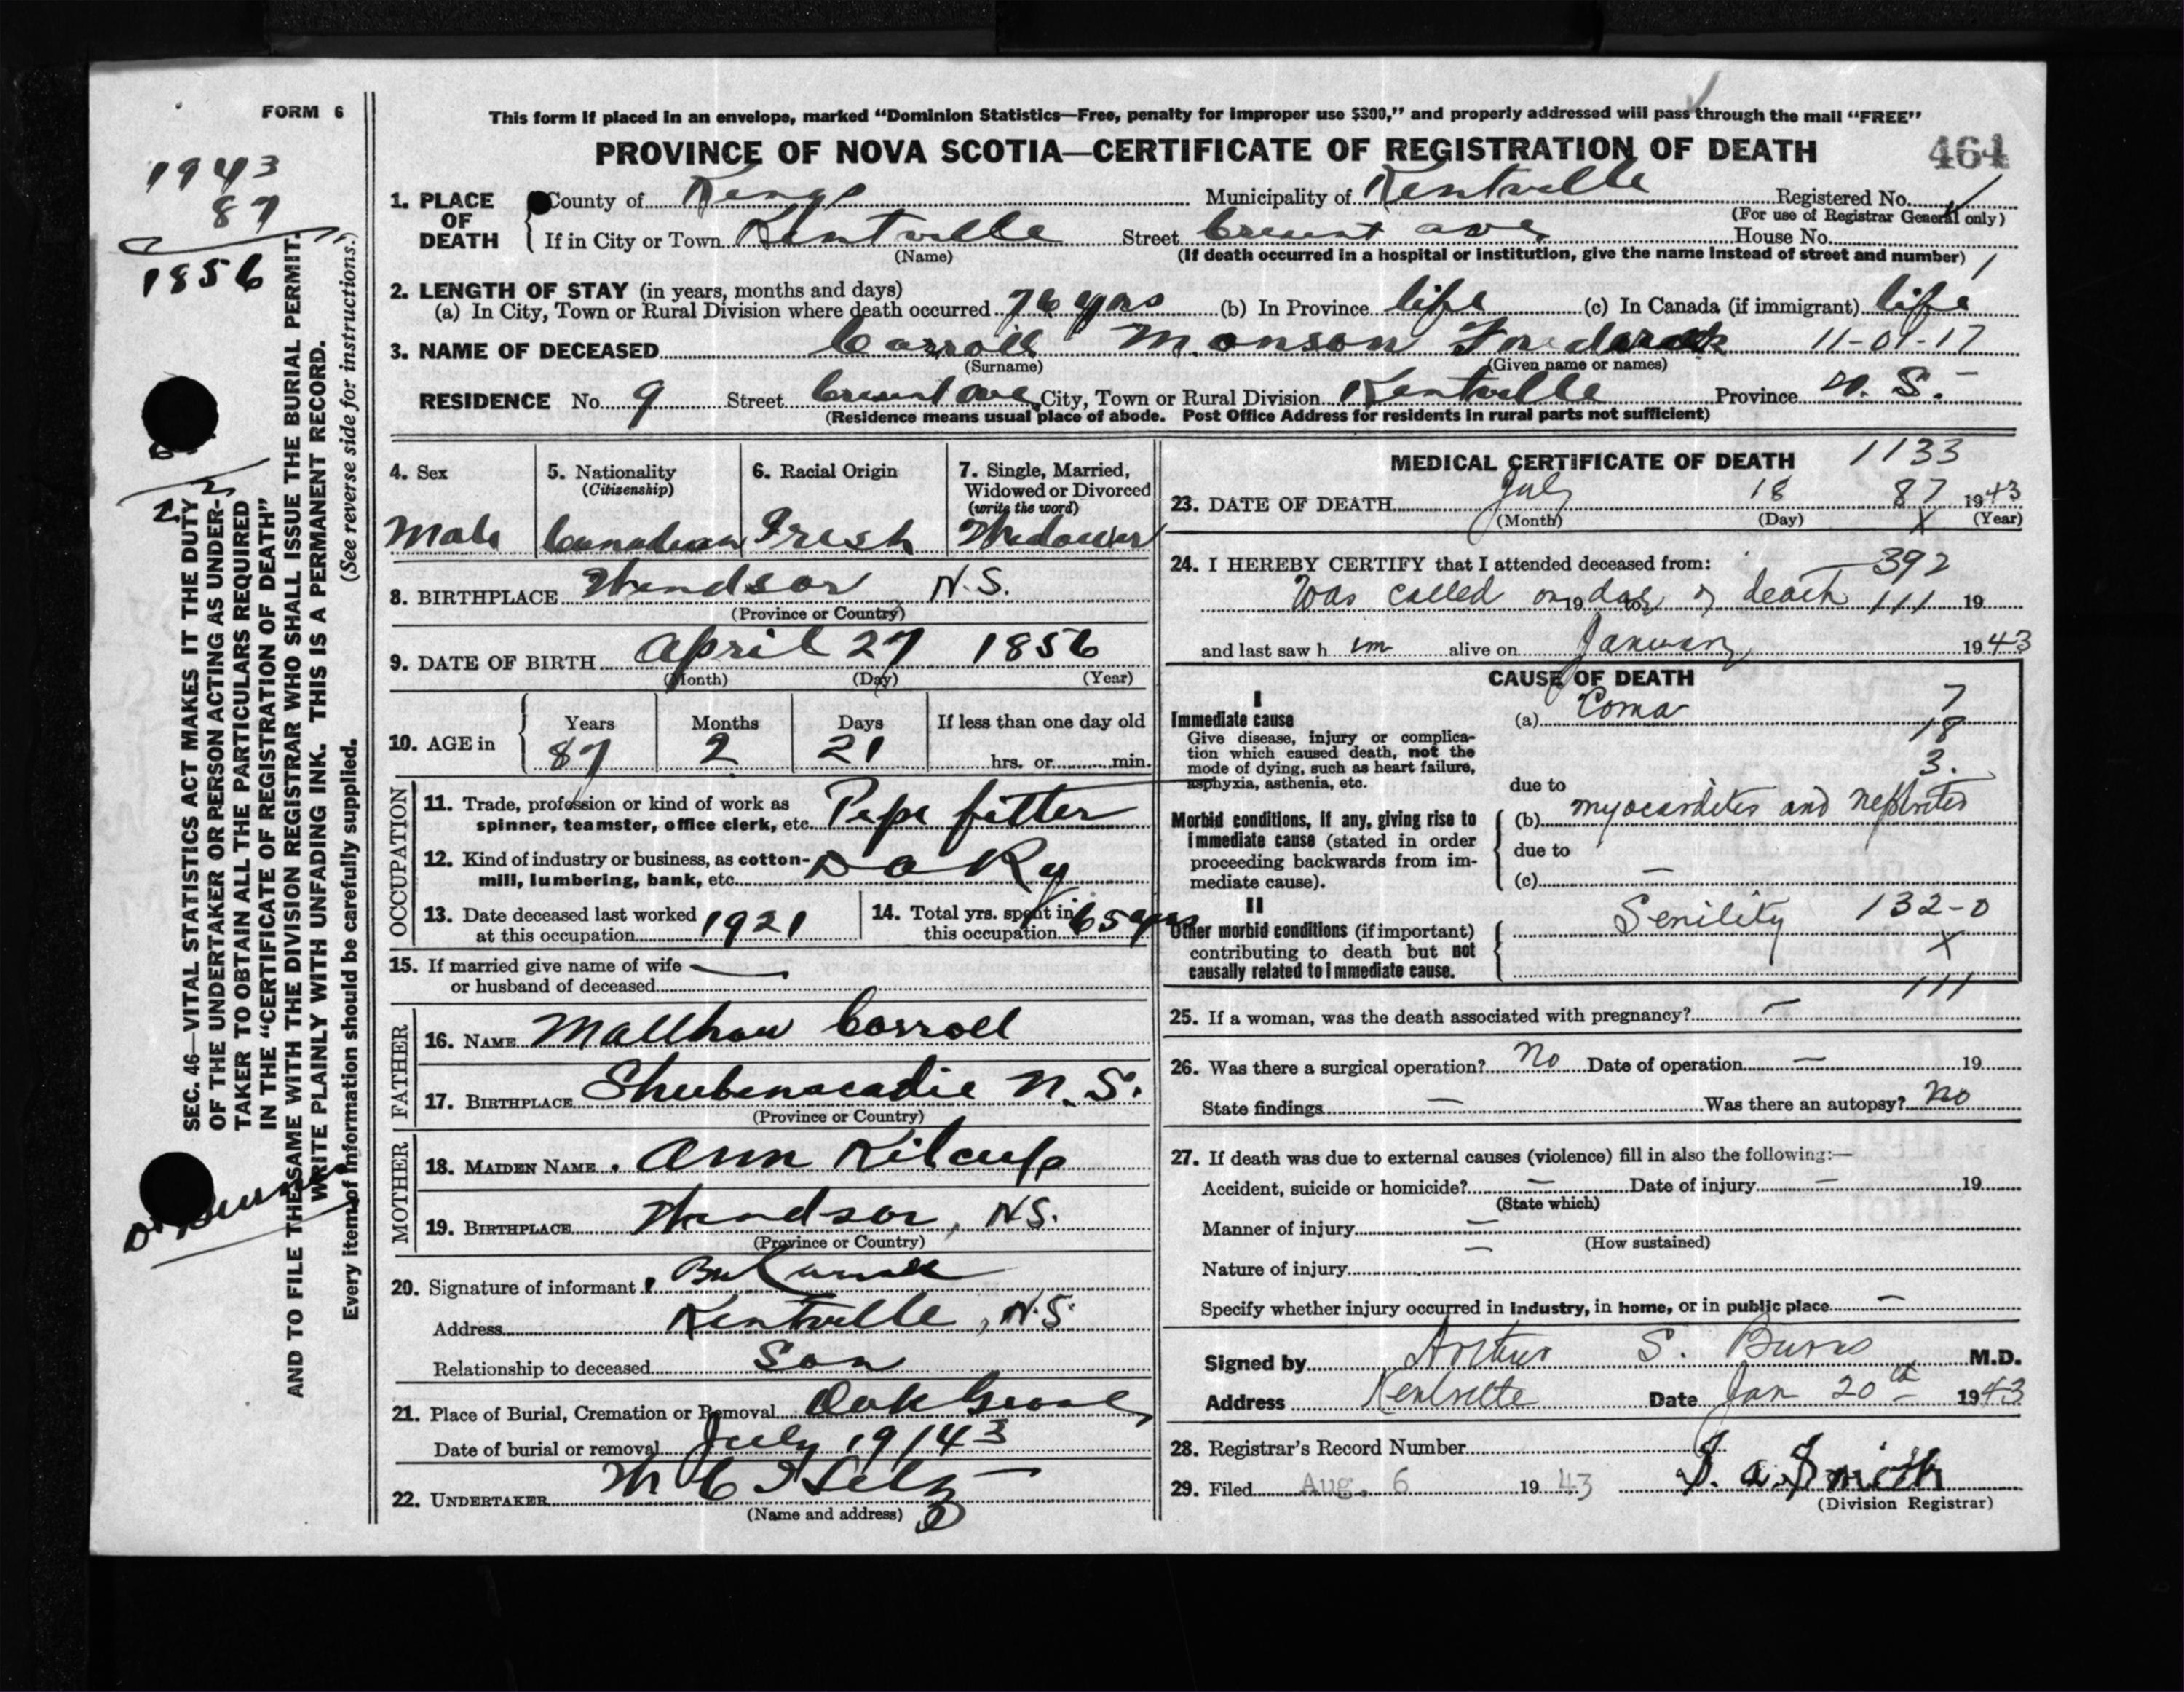 FORM 6
This form if placed in an envelope, marked “Dominion Statistics—Free, penalty for improper use $300,” and properly addressed will pass through the mail “FREE”
PROVINCE OF NOVA SCOTIA—CERTIFICATE OF REGISTRATION OF DEATH
464
1943
87
1856
1. PLACE OF DEATH
County of Kings Municipality of Kentville Registered No.
(For use of Registrar General only)
If in City or Town Kentville Street Cresent ave House No.
(Name) (If death occurred in a hospital or institution, give the name instead of street and number)
2. LENGTH OF STAY (in years, months and days)
(a) In City, Town or Rural Division where death occurred 76 yrs (b) In Province life (c) In Canada (if immigrant) life
3. NAME OF DECEASED Carroll Monson Frederick 11-01-17
(Surname) (Given name or names)
RESIDENCE No. 9 Street Cresent Ave City, Town or Rural Division Kentville Province N. S.
(Residence means usual place of abode. Post Office Address for residents in rural parts not sufficient)
4. Sex
Male
5. Nationality
(Citizenship)
Canadian
6. Racial Origin
Iresh
7. Single, Married,
Widowed or Divorced
(write the word)
Widower
8. BIRTHPLACE Windsor N.S.
(Province or Country)
9. DATE OF BIRTH April 27 1856
(Month) (Day) (Year)
10. AGE in
Years Months Days If less than one day old
87 2 21 hrs. or min.
OCCUPATION
11. Trade, profession or kind of work as
spinner, teamster, office clerk, etc. Pipe fitter
12. Kind of industry or business, as cotton-
mill, lumbering, bank, etc. D a Ry
13. Date deceased last worked
at this occupation 1921
14. Total yrs. spent in
this occupation 65 yrs
15. If married give name of wife —
or husband of deceased
FATHER
16. NAME Matthew Carroll
17. BIRTHPLACE Shubenacadie N. S.
(Province or Country)
MOTHER
18. MAIDEN NAME Ann Kilcup
19. BIRTHPLACE Windsor, N.S.
(Province or Country)
20. Signature of informant
Address Kentville, N.S.
Relationship to deceased Son
21. Place of Burial, Cremation or Removal Oak Grove
Date of burial or removal July 19/43
22. UNDERTAKER
(Name and address)
MEDICAL CERTIFICATE OF DEATH 1133
23. DATE OF DEATH July 18 87 1943
(Month) (Day) X (Year)
24. I HEREBY CERTIFY that I attended deceased from: 392
Was called on 19 day to of death 111 19
and last saw h im alive on January 1943
CAUSE OF DEATH
I
Immediate cause
Give disease, injury or complica-
tion which caused death, not the
mode of dying, such as heart failure,
asphyxia, asthenia, etc.
(a) Coma 7
18
3.
due to
Morbid conditions, if any, giving rise to
immediate cause (stated in order
proceeding backwards from im-
mediate cause).
(b) myocarditis and nephritis
due to
(c) —
II
Other morbid conditions (if important)
contributing to death but not
causally related to immediate cause.
Senility 132-0
X
111
25. If a woman, was the death associated with pregnancy? —
26. Was there a surgical operation? No Date of operation — 19
State findings — Was there an autopsy? No
27. If death was due to external causes (violence) fill in also the following:—
Accident, suicide or homicide? — Date of injury — 19
(State which)
Manner of injury —
(How sustained)
Nature of injury —
Specify whether injury occurred in industry, in home, or in public place —
Signed by Arthur S. Burns M.D.
Address Kentville Date Jan 20th 1943
28. Registrar's Record Number
29. Filed Aug. 6 1943 Smith
(Division Registrar)
SEC. 46—VITAL STATISTICS ACT MAKES IT THE DUTY
OF THE UNDERTAKER OR PERSON ACTING AS UNDER-
TAKER TO OBTAIN ALL THE PARTICULARS REQUIRED
IN THE “CERTIFICATE OF REGISTRATION OF DEATH”
AND TO FILE THE SAME WITH THE DIVISION REGISTRAR WHO SHALL ISSUE THE BURIAL PERMIT.
WRITE PLAINLY WITH UNFADING INK. THIS IS A PERMANENT RECORD.
Every item of information should be carefully supplied. (See reverse side for instructions.)